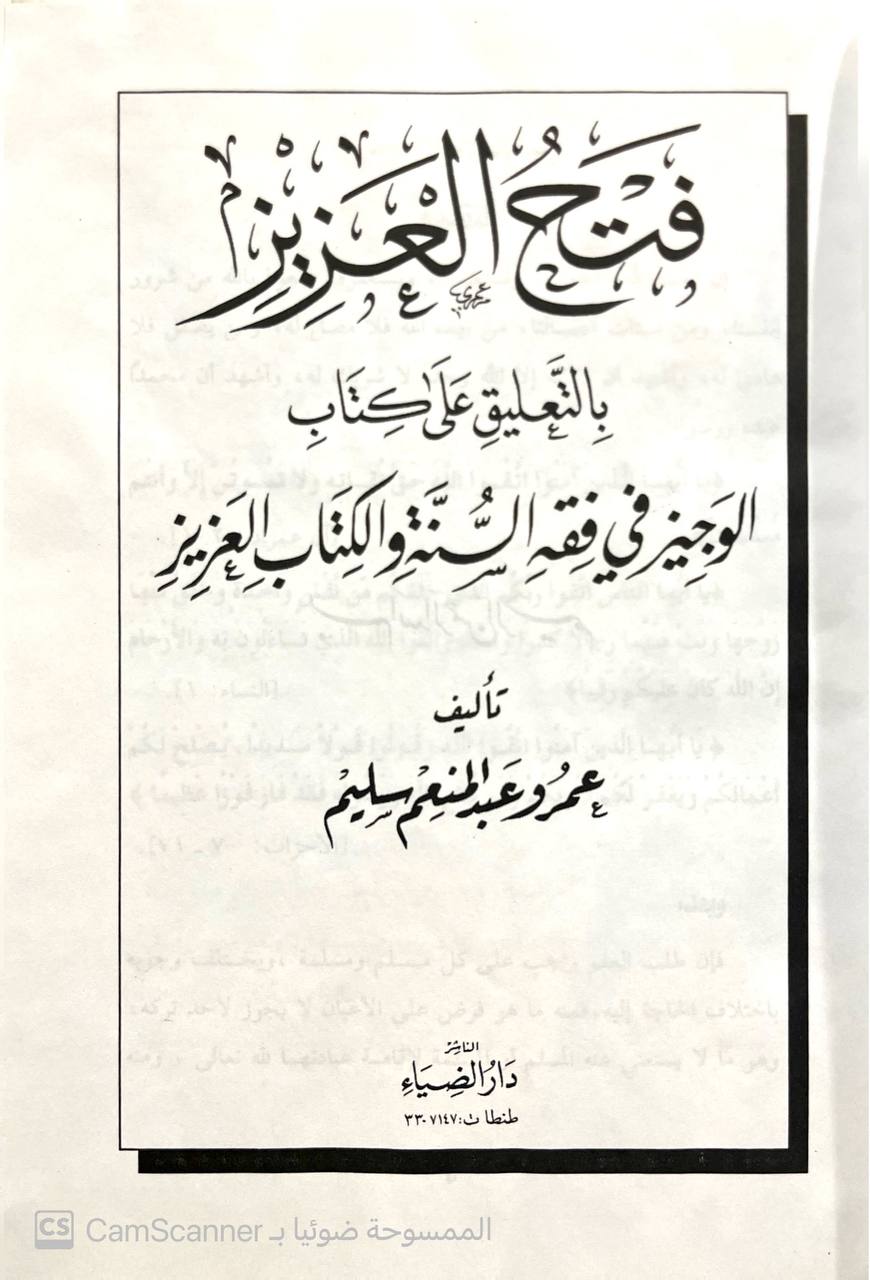 فَتْحُ الْعَزِيزِ
بِالتَّعلِيقِ عَلَى كِتَابِ
الوَجِيز في فِقهِ السُّنَّةِ وَالكِتَابِ العَزِيزِ
تأليف
عمرو عَبد المنعِم سليم
الناشر
دَارُ الضِيَاءِ
طنطا ت: ٣٣٠٧١٤٧
CS CamScanner الممسوحة ضوئيا بـ